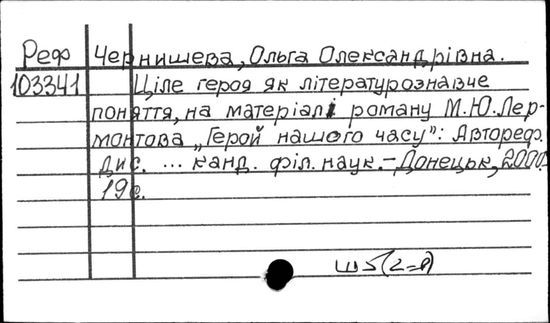 Реф Чернишева, Ольга Олександрівна.
103341 Ціле героя як літературознавче
поняття, на матеріалі роману М.Ю.Лер-
монтова „Герой нашого часу": Автореф.
дис. ... канд. філ. наук. - Донецьк, 2000.
19с.